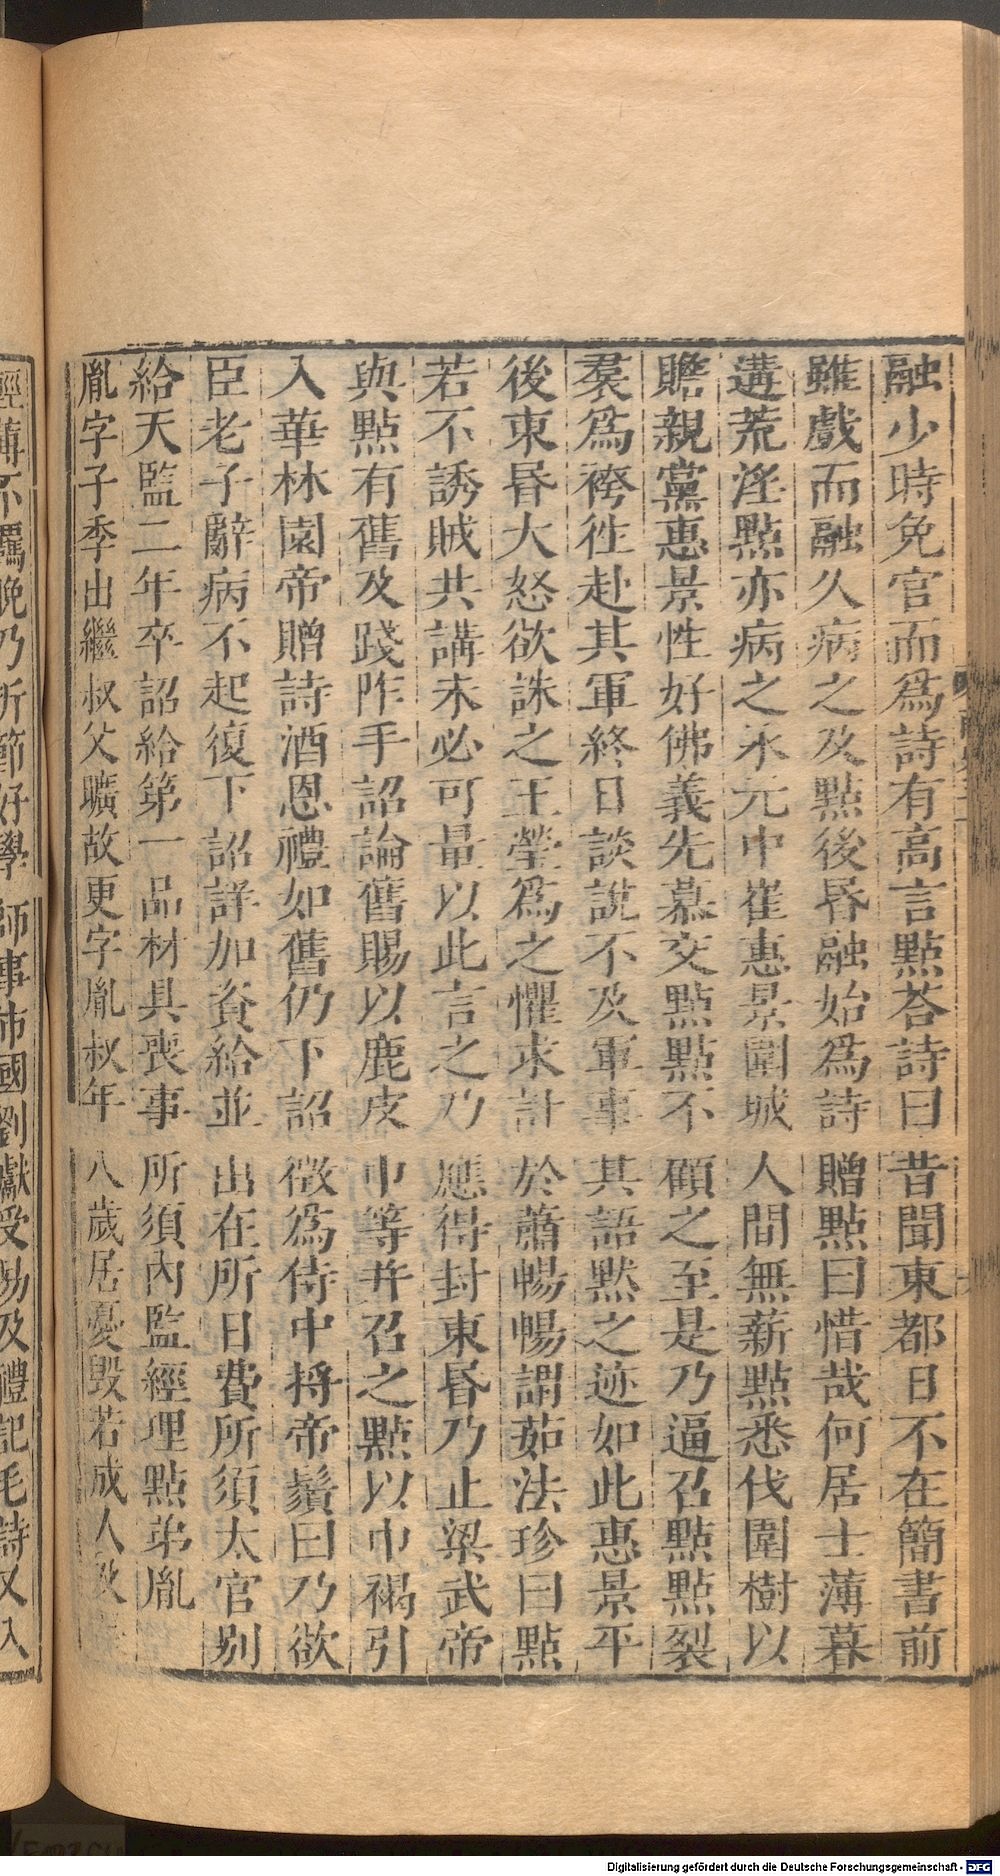 融少時免官而爲詩有高言點荅詩曰昔聞東都日不在簡書前
雖戲而融久病之及點後昏融始爲詩贈點曰惜哉何居士薄暮
遘荒淫點亦病之永元中崔惠景圍城人間無薪點悉伐圍樹以
贍親黨惠景性好佛義先慕交點點不顧之至是乃逼召點點裂
裠爲袴徃赴其軍終日談說不及軍事其語默之迹如此惠景平
後東昏大怒欲誅之王瑩爲之懼求計於蕭暢暢謂茹法珍曰點
若不誘賊共講未必可量以此言之乃應得封東昏乃止梁武帝
與點有舊及踐阼手詔論舊賜以鹿皮巾等幷召之點以巾褐引
入華林園帝贈詩酒恩禮如舊仍下詔徵爲侍中捋帝鬚曰乃欲
臣老子辭病不起復下詔詳加資給並出在所日費所須太官别
給天監二年卒詔給第一品材具喪事所須內監經理點弟胤
胤字子季出繼叔父曠故更字胤叔年八歲居憂毀若成人及
輕薄不羈晚乃折節好學師事沛國劉瓛受易及禮記毛詩又入
Digitalisierung gefördert durch die Deutsche Forschungsgemeinschaft - DFG